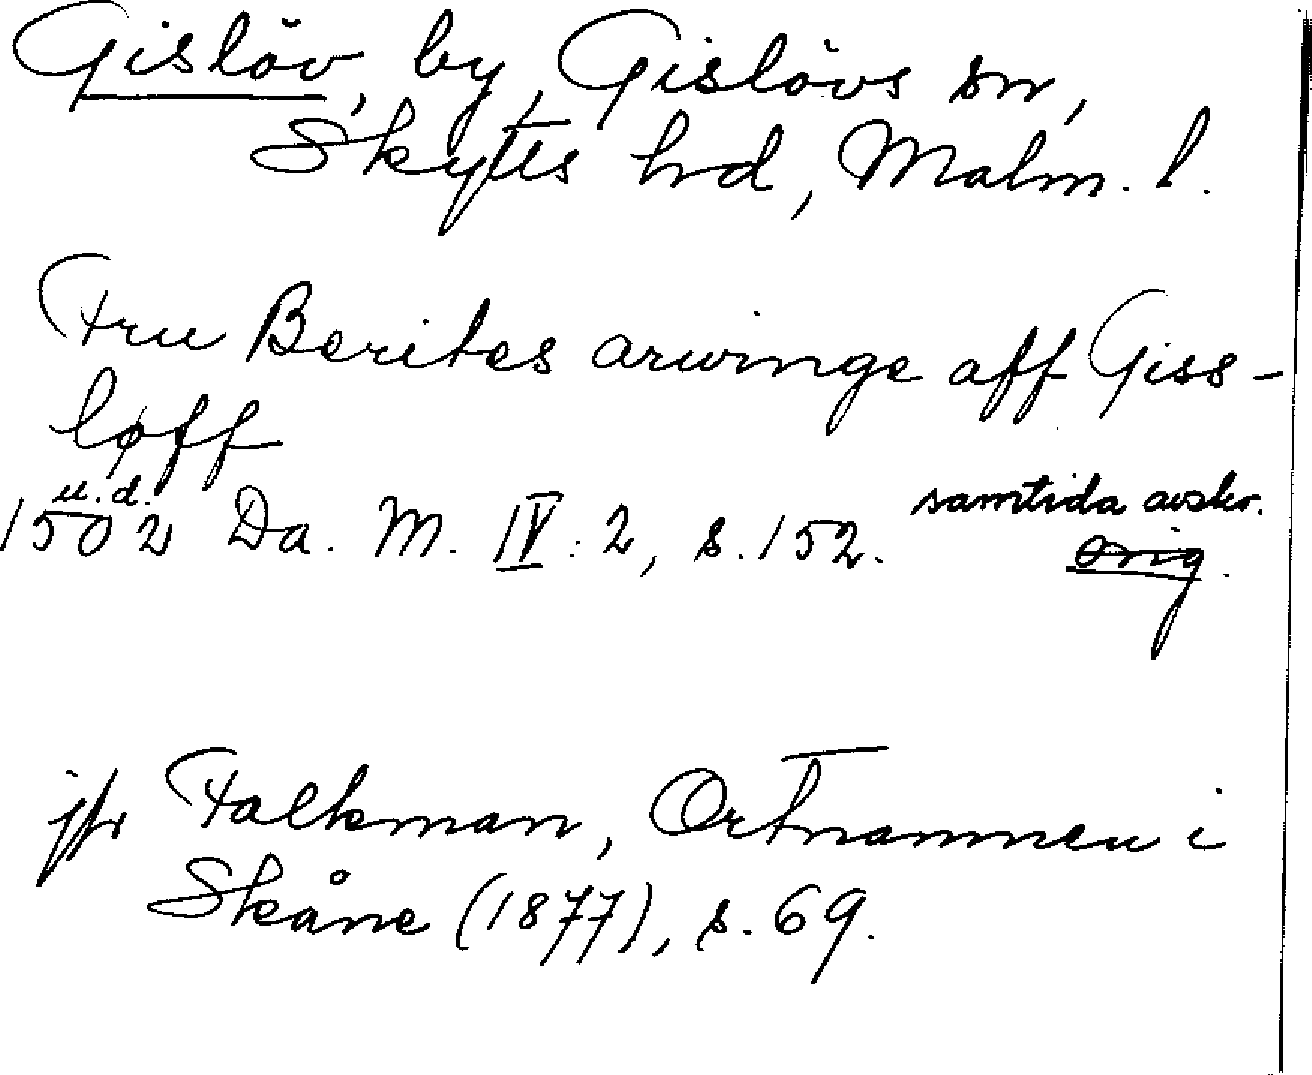 Gislöv, by, Gislövs sn,
Skytts hrd, Malm. l.
Fru Berites arwinge aff Giss-
løff
u.d.
1502 Da. M. IV: 2, s. 152.
samtida avskr.
Orig.
jfr Falkman, Ortnamnen i
Skåne (1877), s. 69.